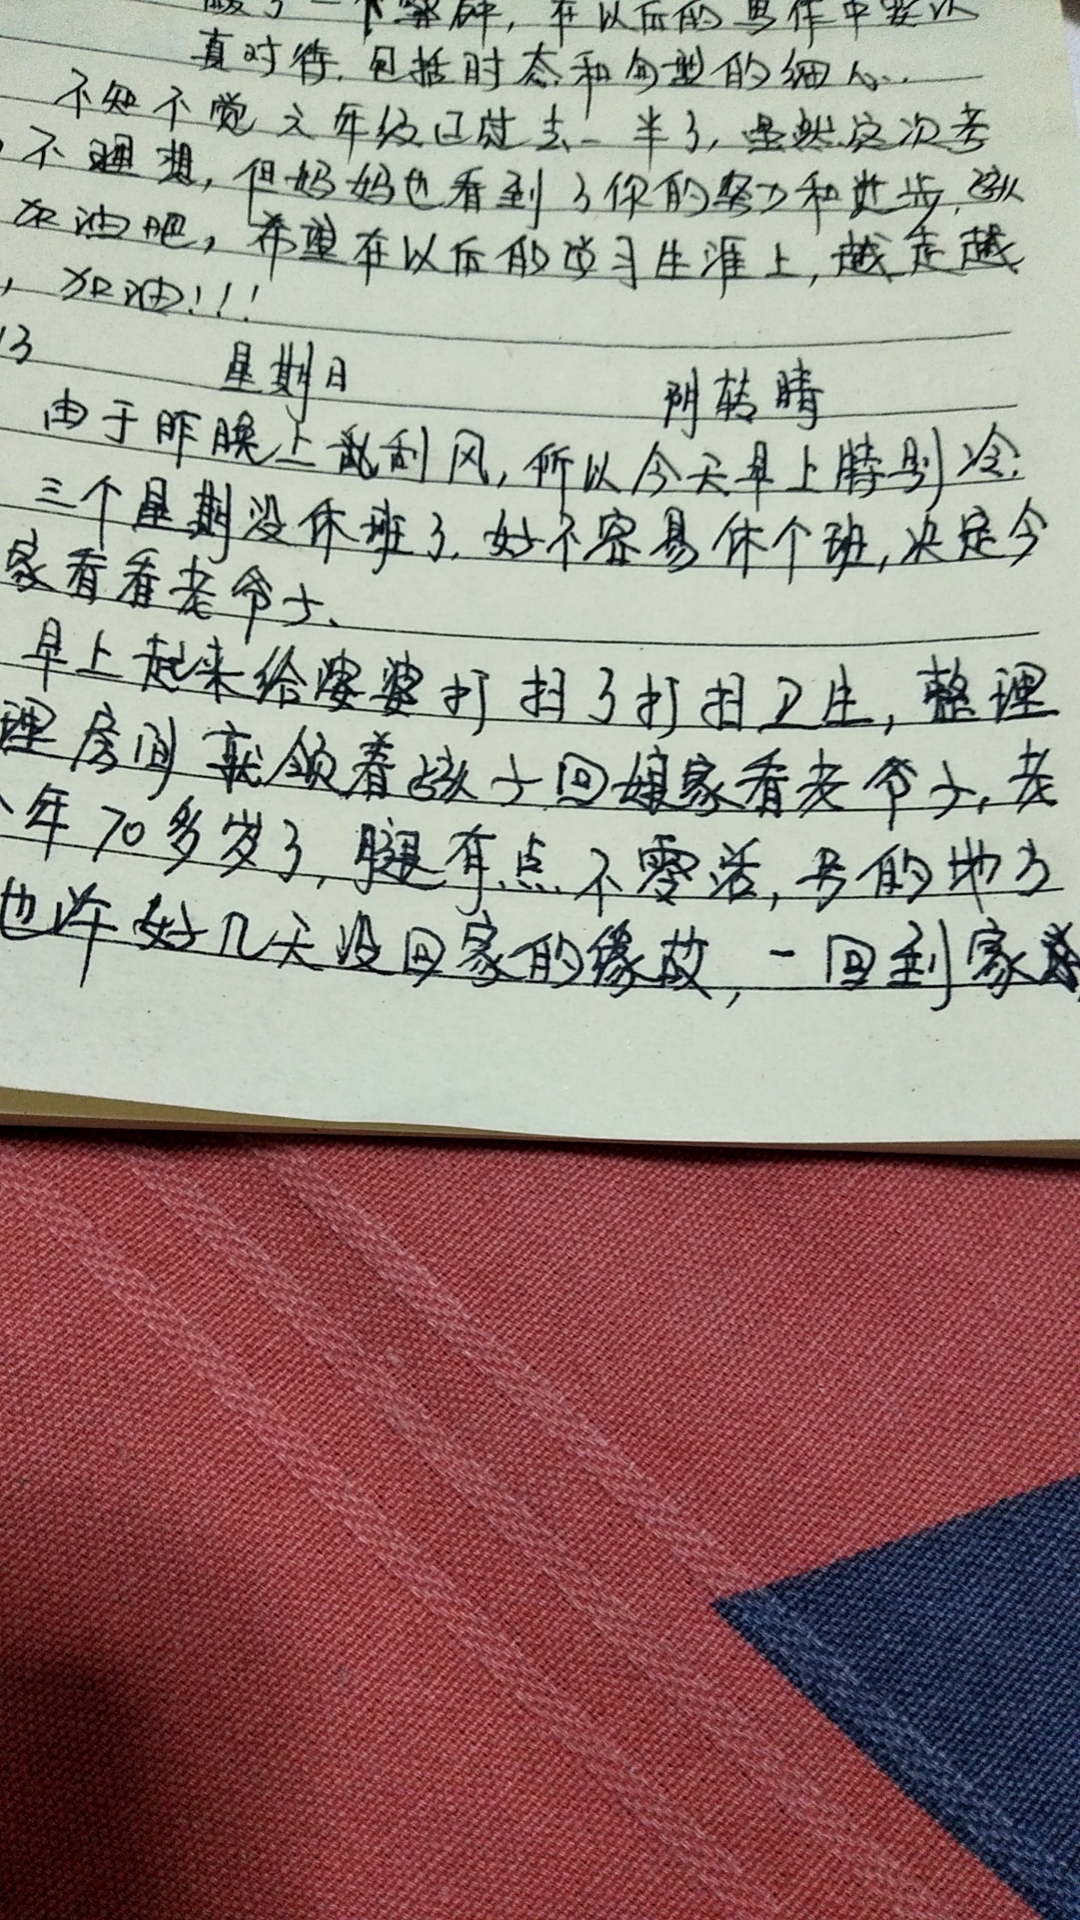 了一个 在以后的 作中要认
真对待,包括时态和句型的细心..
不知不觉六年级已过去一半了,虽然这次考
不理想,但妈妈也看到了你的努力和进步,孩
加油吧,希望在以后的学习生涯上,越走越
,加油!!!
13 星期日 阴转晴
由于昨晚上乱刮风,所以今天早上特别冷.
三个星期没休班了.好不容易休个班,决定今
家看看老爷子、
早上起来给婆婆打扫了打扫卫生,整理
理房间就领着孩子回娘家看老爷子,老
年70多岁了,腿有点不零活,别的地方
也许好几天没回家的缘故,一回到家